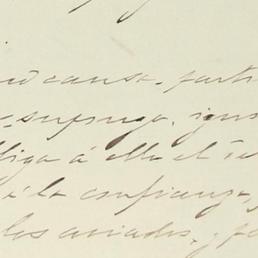 causa, parti
suponga, igno
obliga á ella el
á la confianza,
los aviados, y pa